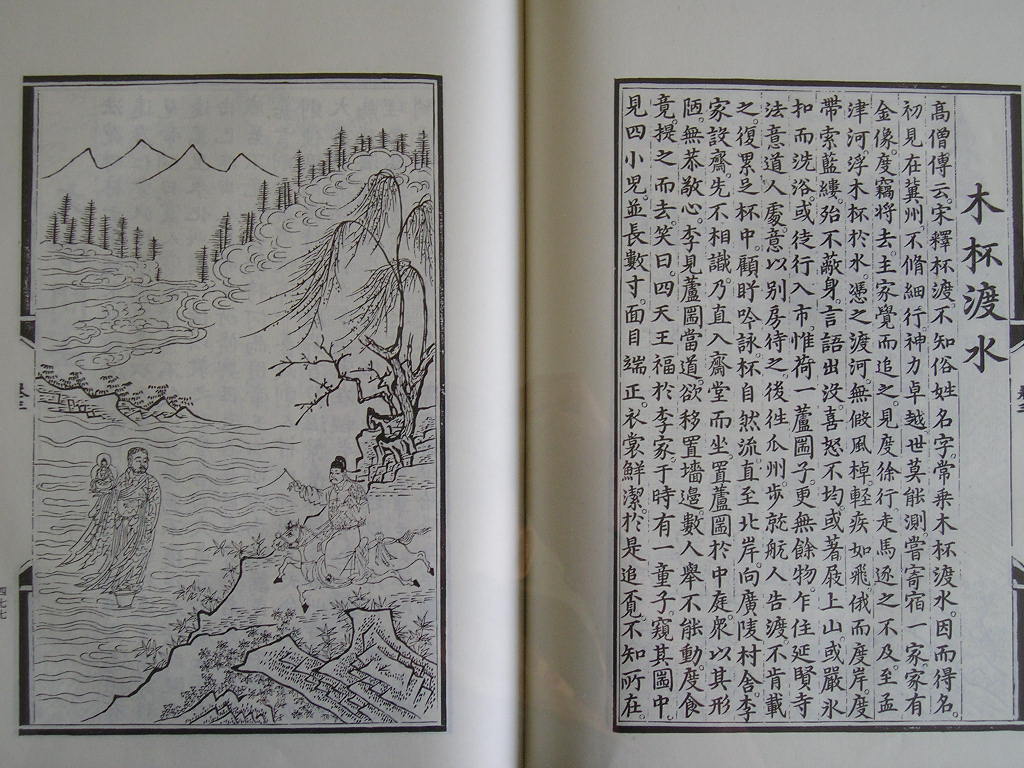 木杯渡水
高僧傳云宋釋杯渡不知俗姓名字常乘木杯渡水因而得名
初見在冀州不脩細行神力卓越世莫能測嘗寄宿一家家有
金像度竊將去主家覺而追之見度徐行走馬逐之不及至孟
津河浮木杯於水憑之渡河無假風棹輕疾如飛俄而度岸度
帶索藍縷殆不蔽身言語出没喜怒不均或著屐上山或嚴氷
扣而洗浴或徒行入市惟荷一蘆圌子更無餘物乍住延賢寺
法意道人處意以别房待之後徃瓜州步就航人告渡不肯載
之復累足杯中顧眄吟詠杯自然流直至北岸向廣陵村舍李
家設齋先不相識乃直入齋堂而坐置蘆圌於中庭衆以其形
陋無恭敬心李見蘆圌當道欲移置墻邊數人舉不能動度食
竟提之而去笑曰四天王福於李家于時有一童子窺其圌中
見四小児並長數寸面目端正衣裳鮮潔於是追覔不知所在